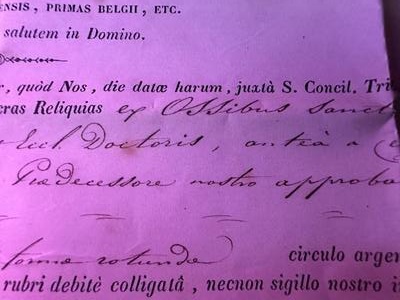 ENSIS, PRIMAS BELGII, ETC.
salutem in Domino.
quòd Nos, die datæ harum, juxtà S. Concil. Tri
cras Reliquias ex Ossibus Sanct
Eccl. Doctoris, anteà a
Prædecessore nostro approba
formæ rotundæ circulo argen
rubri debitè colligatâ, necnon sigillo nostro i